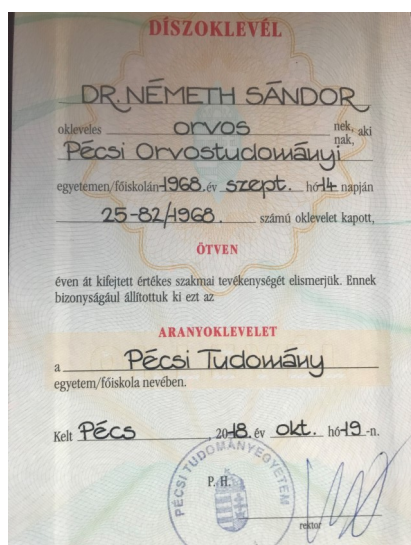 DÍSZOKLEVÉL
DR. NÉMETH SÁNDOR
okleveles orvos nek, nak, aki
Pécsi Orvostudományi
egyetemen/főiskolán 1968. év szept. hó 14 napján
25-82/1968. számú oklevelet kapott,
ÖTVEN
éven át kifejtett értékes szakmai tevékenységét elismerjük. Ennek
bizonyságául állítottuk ki ezt az
ARANYOKLEVELET
a Pécsi Tudomány
egyetem/főiskola nevében.
Kelt Pécs, 2018. év okt. hó 19-n.
PÉCSI TUDOMÁNYEGYETEM
P. H.
rektor